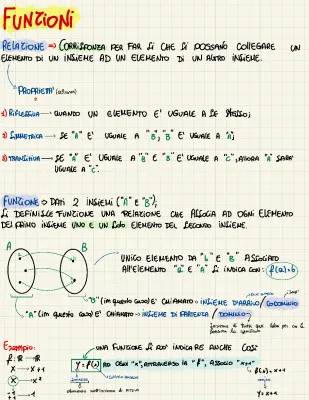 FUNZIONI
RELAZIONE => CORRISPONDENZA PER FAR SÌ CHE SI POSSANO COLLEGARE UN
ELEMENTO DI UN INSIEME AD UN ELEMENTO DI UN ALTRO INSIEME.
PROPRIETÀ
1) RIFLESSIVA → QUANDO UN ELEMENTO E' UGUALE A SE STESSO;
2) SIMMETRICA → SE "A" E' UGUALE A "B", "B" E' UGUALE A "A";
3) TRANSITIVA → SE "A" E' UGUALE A "B" E "B" E' UGUALE A "C", ALLORA "A" SARÀ
UGUALE A "C".
FUNZIONE → DATI 2 INSIEMI ("A" E "B"),
SI DEFINISCE FUNZIONE UNA RELAZIONE CHE ASSOCIA AD OGNI ELEMENTO
DEL PRIMO INSIEME UNO E UN SOLO ELEMENTO DEL SECONDO INSIEME.
A B
UNICO ELEMENTO DA "b" E "B" ASSOCIATO
ALL'ELEMENTO "a" E "A" SI INDICA CON: f(a)=b
"B" (in questo caso) E' CHIAMATO → INSIEME D'ARRIVO / CODOMINIO
"A" (in questo caso) E' CHIAMATO → INSIEME DI PARTENZA / DOMINIO
Esempio:
UNA FUNZIONE SI PUÒ INDICARE ANCHE COSÌ
f: R → R
X → X+1
y = f(x) AD OGNI "x", ATTRAVERSO LA "f", ASSOCIO "x+1"
f(x) = x+1
y = x+1